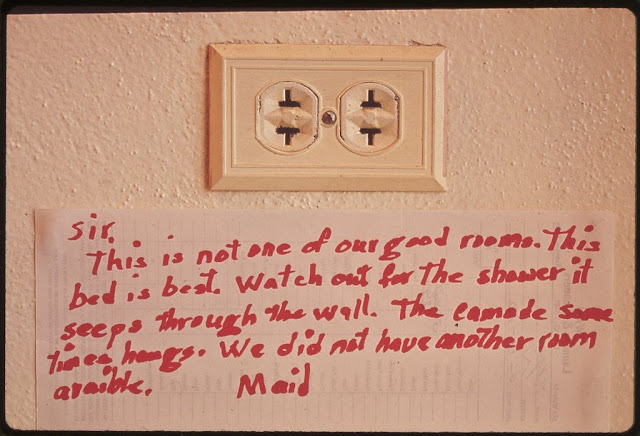 Sir,
This is not one of our good rooms. This
bed is best. Watch out for the shower it
seeps through the wall. The camode some
times hangs. We did not have another room
avaible. Maid